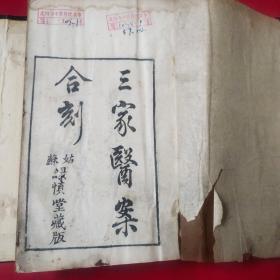 三家醫案
合刻
姑蘇
謨慎堂藏版